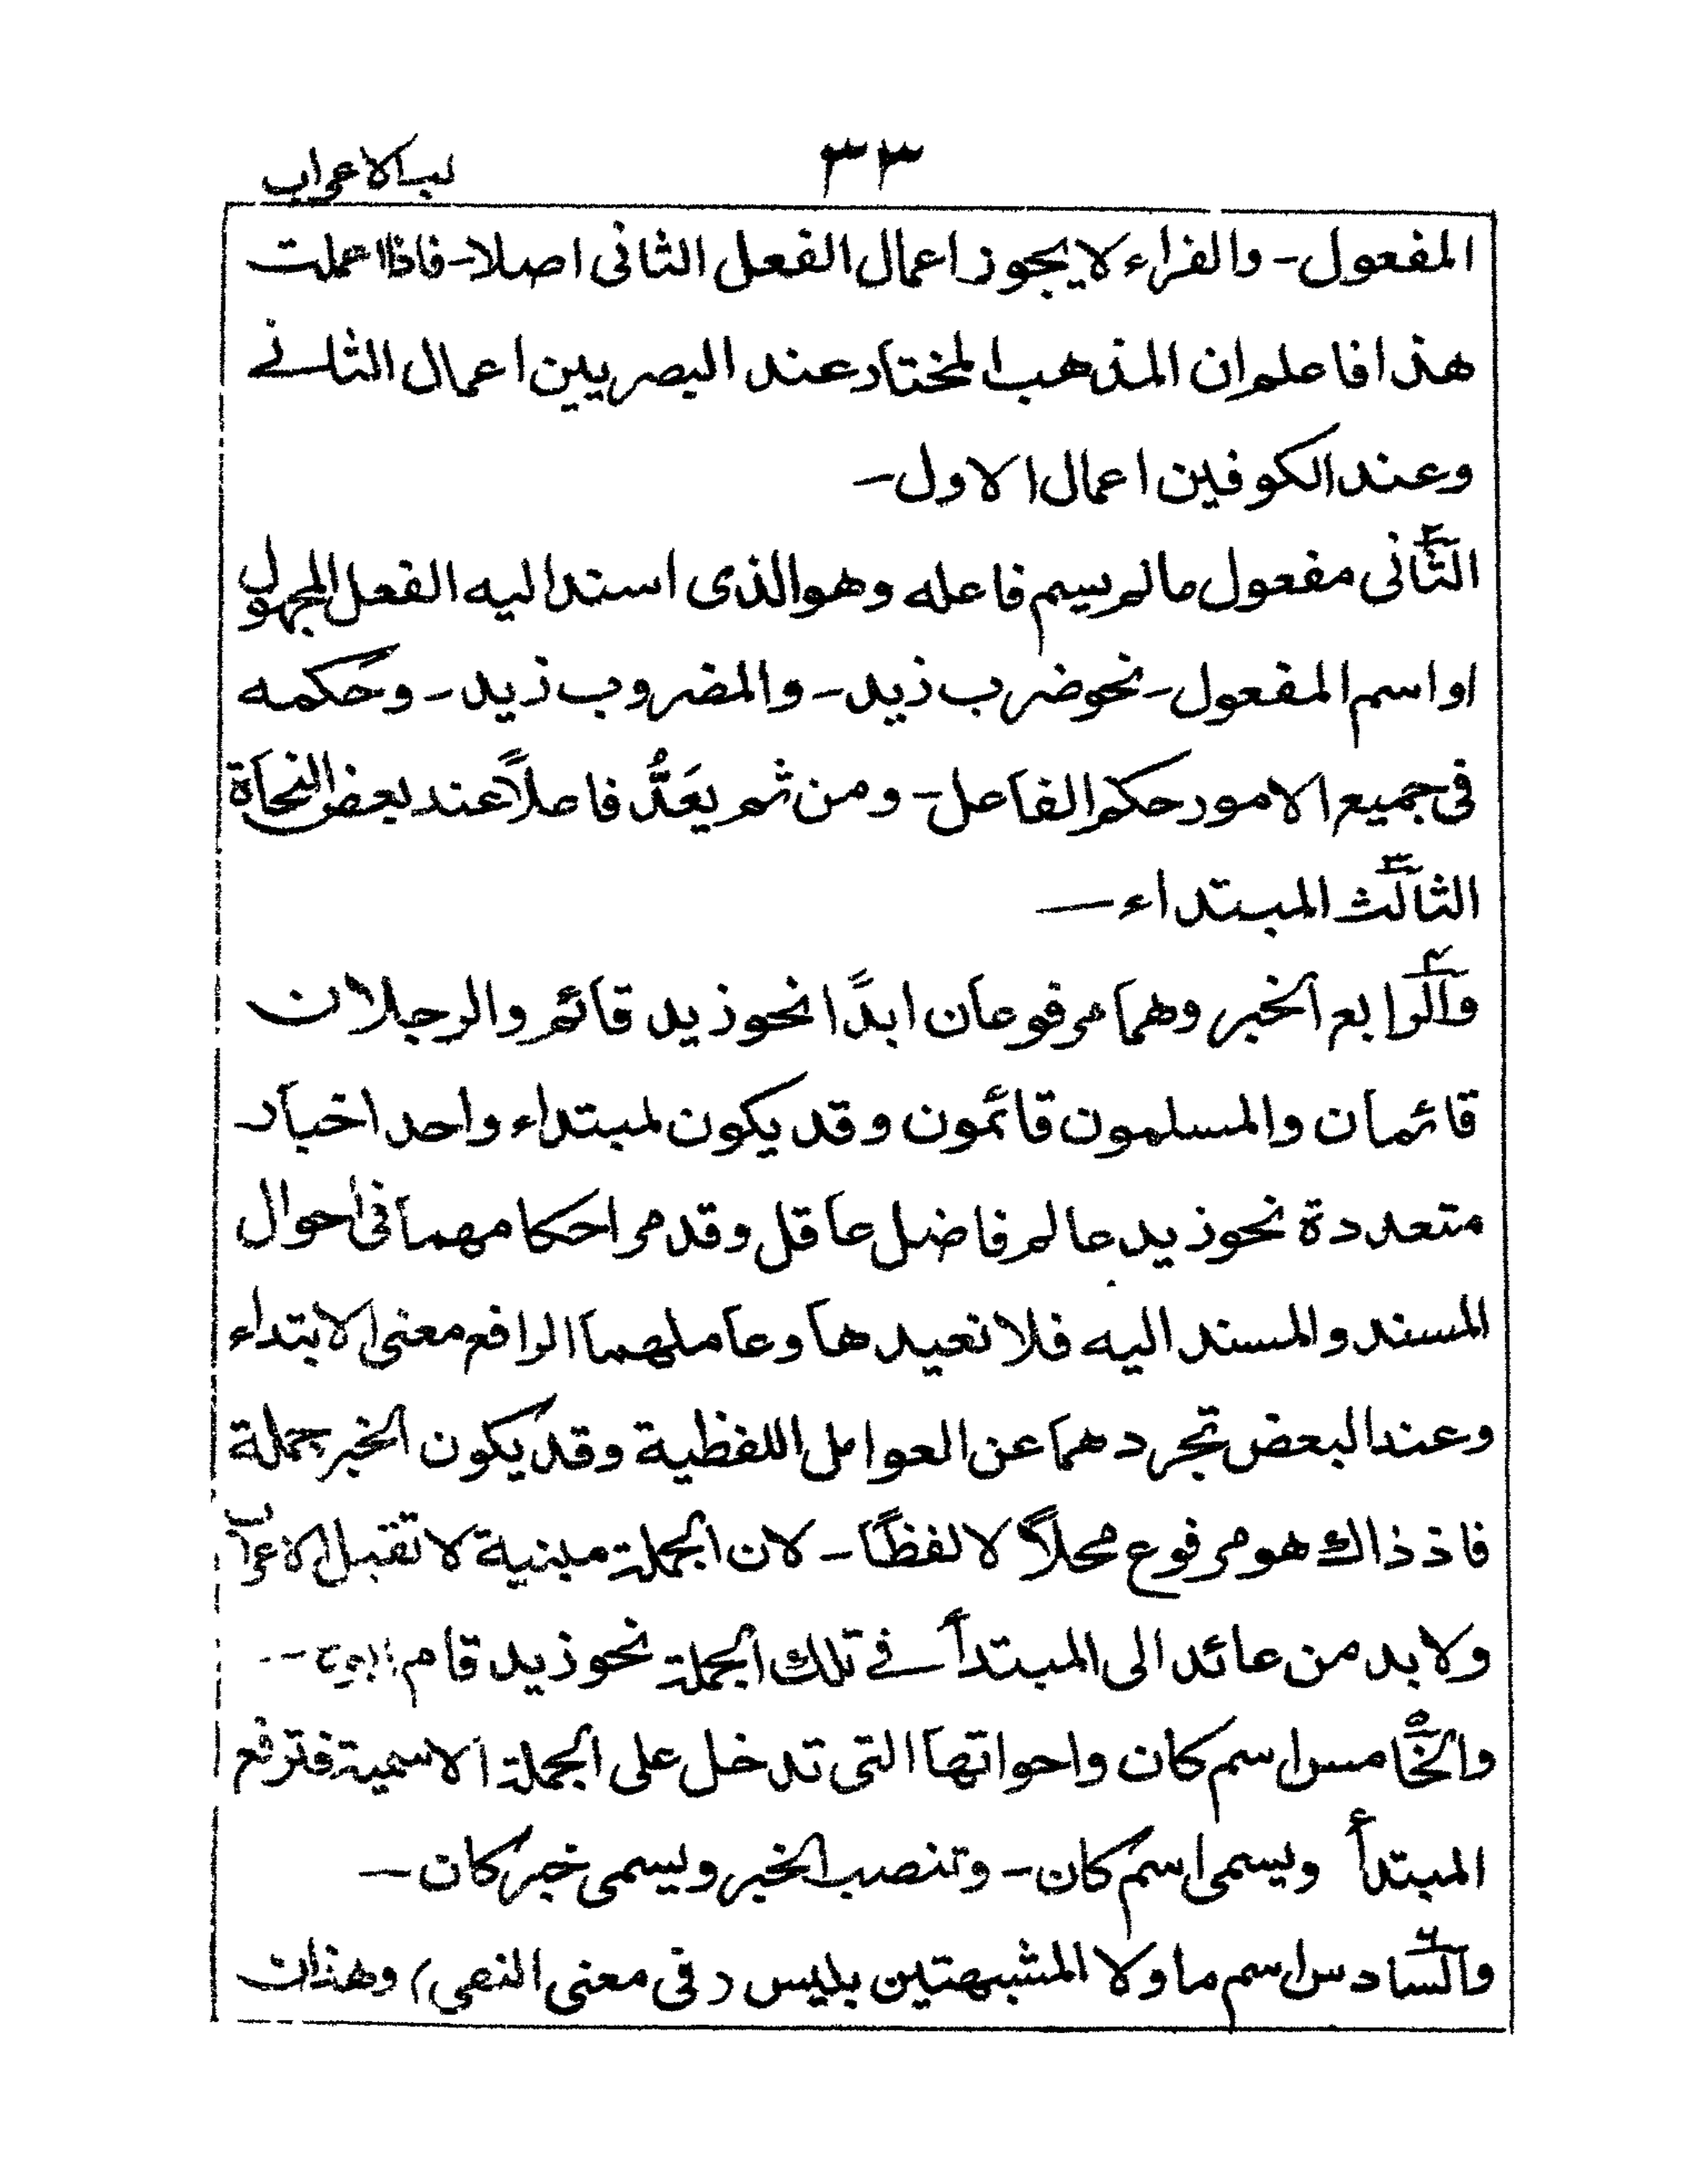 ٣٣
لب الاعراب
المفعول - والفراء لا يجوز اعمال الفعل الثانى اصلا - فاذا عملت
هذا فاعلم ان المذهب المختار عند البصريين اعمال الثانے
وعند الكوفين اعمال الاول -
٢
الثانى مفعول ما لم يسم فاعله وهو الذى اسند اليه الفعل المجهول
او اسم المفعول - نحو ضرب زيد - والمضروب زيد - وحكمه
فى جميع الامور حكم الفاعل - ومن ثم يَعَدُّ فاعلاً عند بعض النحاة
٣
الثالث المبتداء —
٤
والرابع الخبر وهما مرفوعان ابدًا نحو زيد قائم والرجلان
قائمان والمسلمون قائمون وقد يكون لمبتداء واحد اخبار
متعددة نحو زيد عالم فاضل عاقل وقد مر احكامهما فى احوال
المسند والمسند اليه فلا نعيدها وعاملهما الرافع معنى الابتداء
وعند البعض تجردهما عن العوامل اللفظية وقد يكون الخبر جملة
فاذ ذاك هو مرفوع محلاً لا لفظًا - لان الجملة مبنية لا تقبل الاعراب
ولا بد من عائد الى المبتدأ فے تلك الجملة نحو زيد قام
٥
والخامس اسم كان واحواتها التى تدخل على الجملة الاسمية فترفع
المبتدأ ويسمى اسم كان - وتنصب الخبر ويسمى خبر كان -
٦
والسادس اسم ما ولا المشبهتين بليس (فى معنى النفى) وهذان